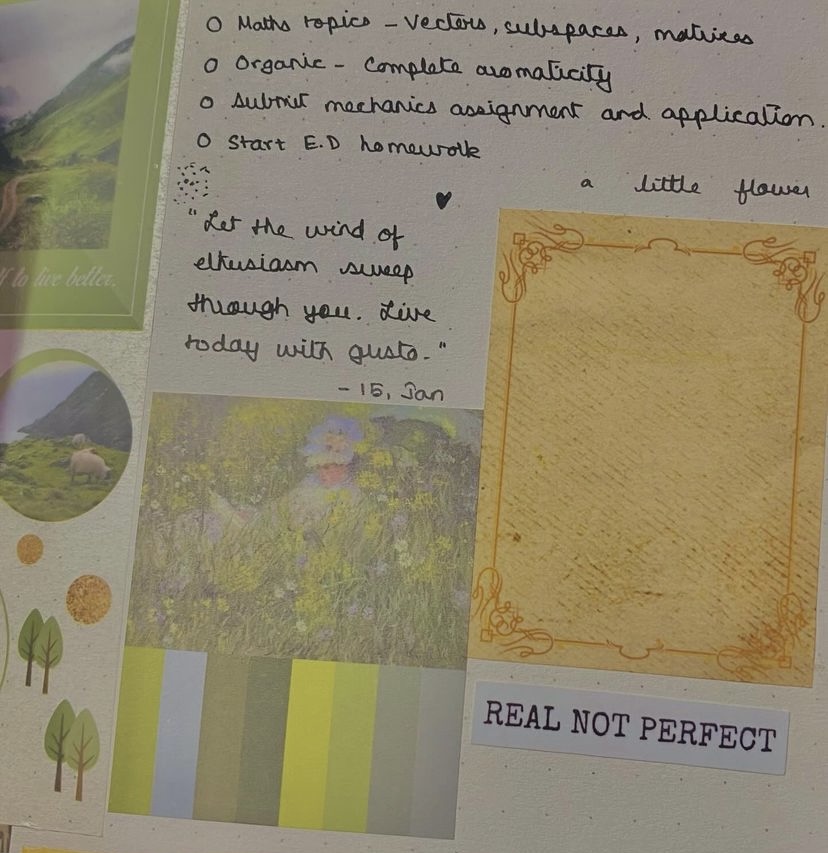 O Maths topics – Vectors, subspaces, matrices
O Organic – Complete aromaticity
O Submit mechanics assignment and application.
O Start E.D homework
a little flower
"Let the wind of
ethusiasm sweep
through you. Live
today with gusto."
– 15, Jan
to live better.
REAL NOT PERFECT